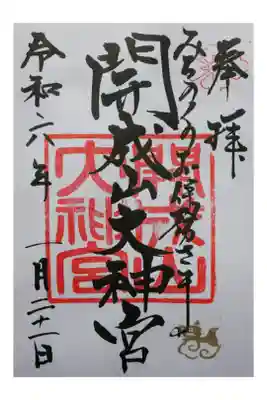 奉拝
みちのくのお伊勢さま
開成山大神宮
開成山
大神宮
令和六年
一月二十一日